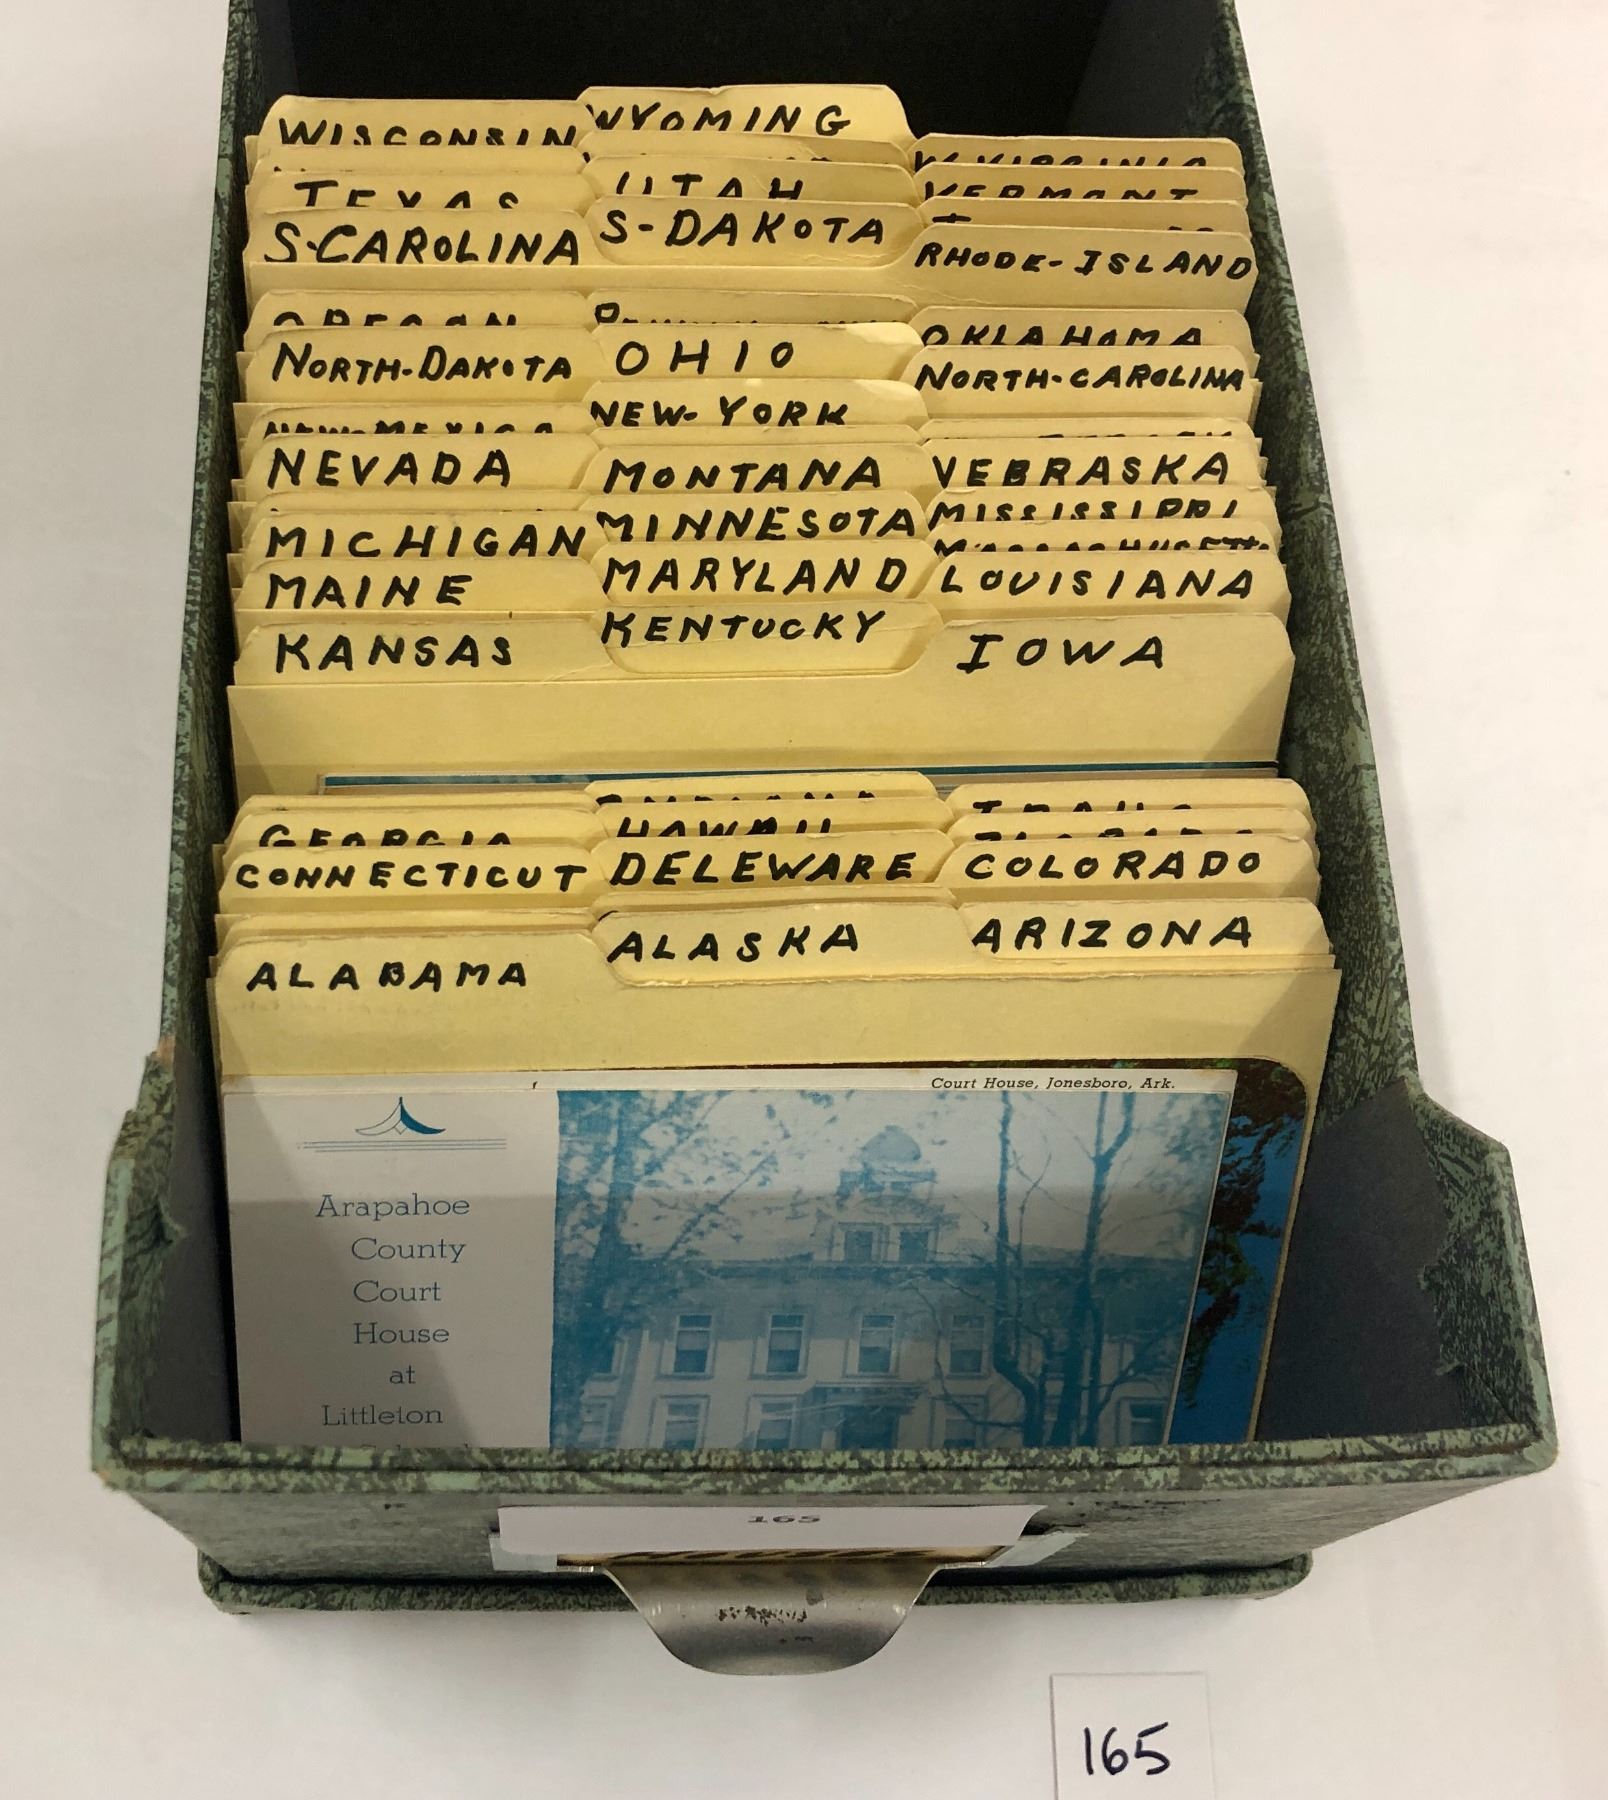 WYOMING
WISCONSIN
W.VIRGINIA
TEXAS
UTAH
VERMONT
S-CAROLINA
S-DAKOTA
RHODE-ISLAND
OREGON
OKLAHOMA
NORTH-DAKOTA
OHIO
NORTH-CAROLINA
NEW-MEXICO
NEW-YORK
NEVADA
MONTANA
NEBRASKA
MICHIGAN
MINNESOTA
MISSISSIPPI
MASSACHUSETTS
MAINE
MARYLAND
LOUISIANA
KANSAS
KENTUCKY
IOWA
INDIANA
IDAHO
GEORGIA
HAWAII
CONNECTICUT
DELEWARE
COLORADO
ALABAMA
ALASKA
ARIZONA
Court House, Jonesboro, Ark.
Arapahoe
County
Court
House
at
Littleton
165
165